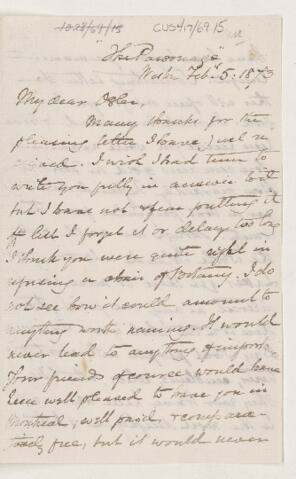 10.28/69/15 CUS417/69/5
"The Parsonage"
Weston Feby. 5. 1873
My dear Osler,
Many thanks for the
pleasing letter I have just re
ceived. I wish I had time to
write you fully in answer to it
but I have not & fear putting it
off lest I forget it or delay too long
I think you were quite right in
refusing a chair of Botany. I do
not see how it could amount to
anything worth naming. It would
never lead to anything of import.
Your friends of course would have
been well pleased to have you in
Montreal, well paid, & comparatively
free, but it would never